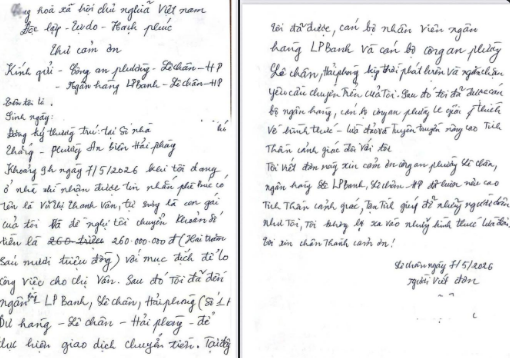 hoà xã hội chủ nghĩa Việt nam
Độc lập - Tự do - Hạnh phúc
Thư cảm ơn
Kính gửi - Công an phường - Lê chân - HP
- Ngân hàng LPBank - Lê chân - HP
Tên tôi là
Sinh ngày:
Đăng ký thường trú tại Số nhà
- Phường An biên Hải phòng
Khoảng 9h ngày 7/5/2026 khi tôi đang
ở nhà thì nhận được tin nhắn
tên là Vũ Thị thanh Vân, tự xưng là con gái
của tôi đề nghị tôi chuyển khoản số
tiền là 260 triệu 260.000.000đ (Hai trăm
Sáu mươi triệu đồng) với mục đích để lo
công việc cho chị Vân. Sau đó Tôi đã đến
ngân hàng LP Bank, Lê chân, Hải phòng (Số
Dư hàng - Lê chân - Hải phòng - để
thực hiện giao dịch chuyển tiền. Tại đây
Tôi đã được, cán bộ nhân Viên ngân
hàng LPBank và cán bộ công an phường
Lê chân, Hải phòng kịp thời phát hiện và ngăn chặn
yêu cầu chuyển Tiền của Tôi. Sau đó tôi đã được cán
bộ ngân hàng, cán bộ công an phường giải thích
Về hình thức lừa đảo và tuyên truyền nâng cao Tinh
Thần cảnh giác đối với tôi
Tôi viết đơn này xin cảm ơn công an phường Lê chân,
ngân hàng LPBank, Lê chân HP nâng cao
Tinh Thần cảnh giác, giúp đỡ những người dân
như Tôi, Tôi những hình thức lừa đảo.
Tôi xin chân Thành cảm ơn!
Lê chân ngày 7/5/2026
Người viết đơn